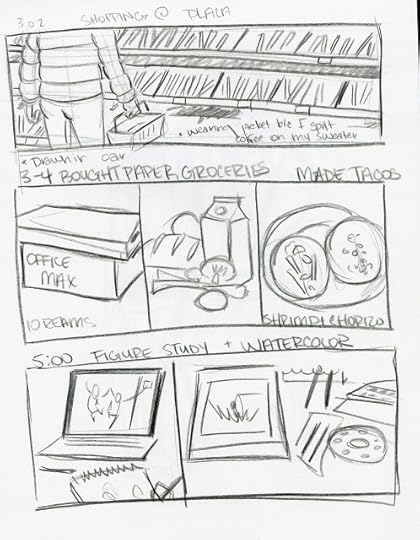 3.02 SHOPPING @ PLAZA
* wearing jacket b/c I spilt
coffee on my sweater
* Drawn in car
3-4 BOUGHT PAPER, GROCERIES MADE TACOS
OFFICE
MAX
10 REAMS
SHRIMP/CHORIZO
5:00 FIGURE STUDY + WATERCOLOR